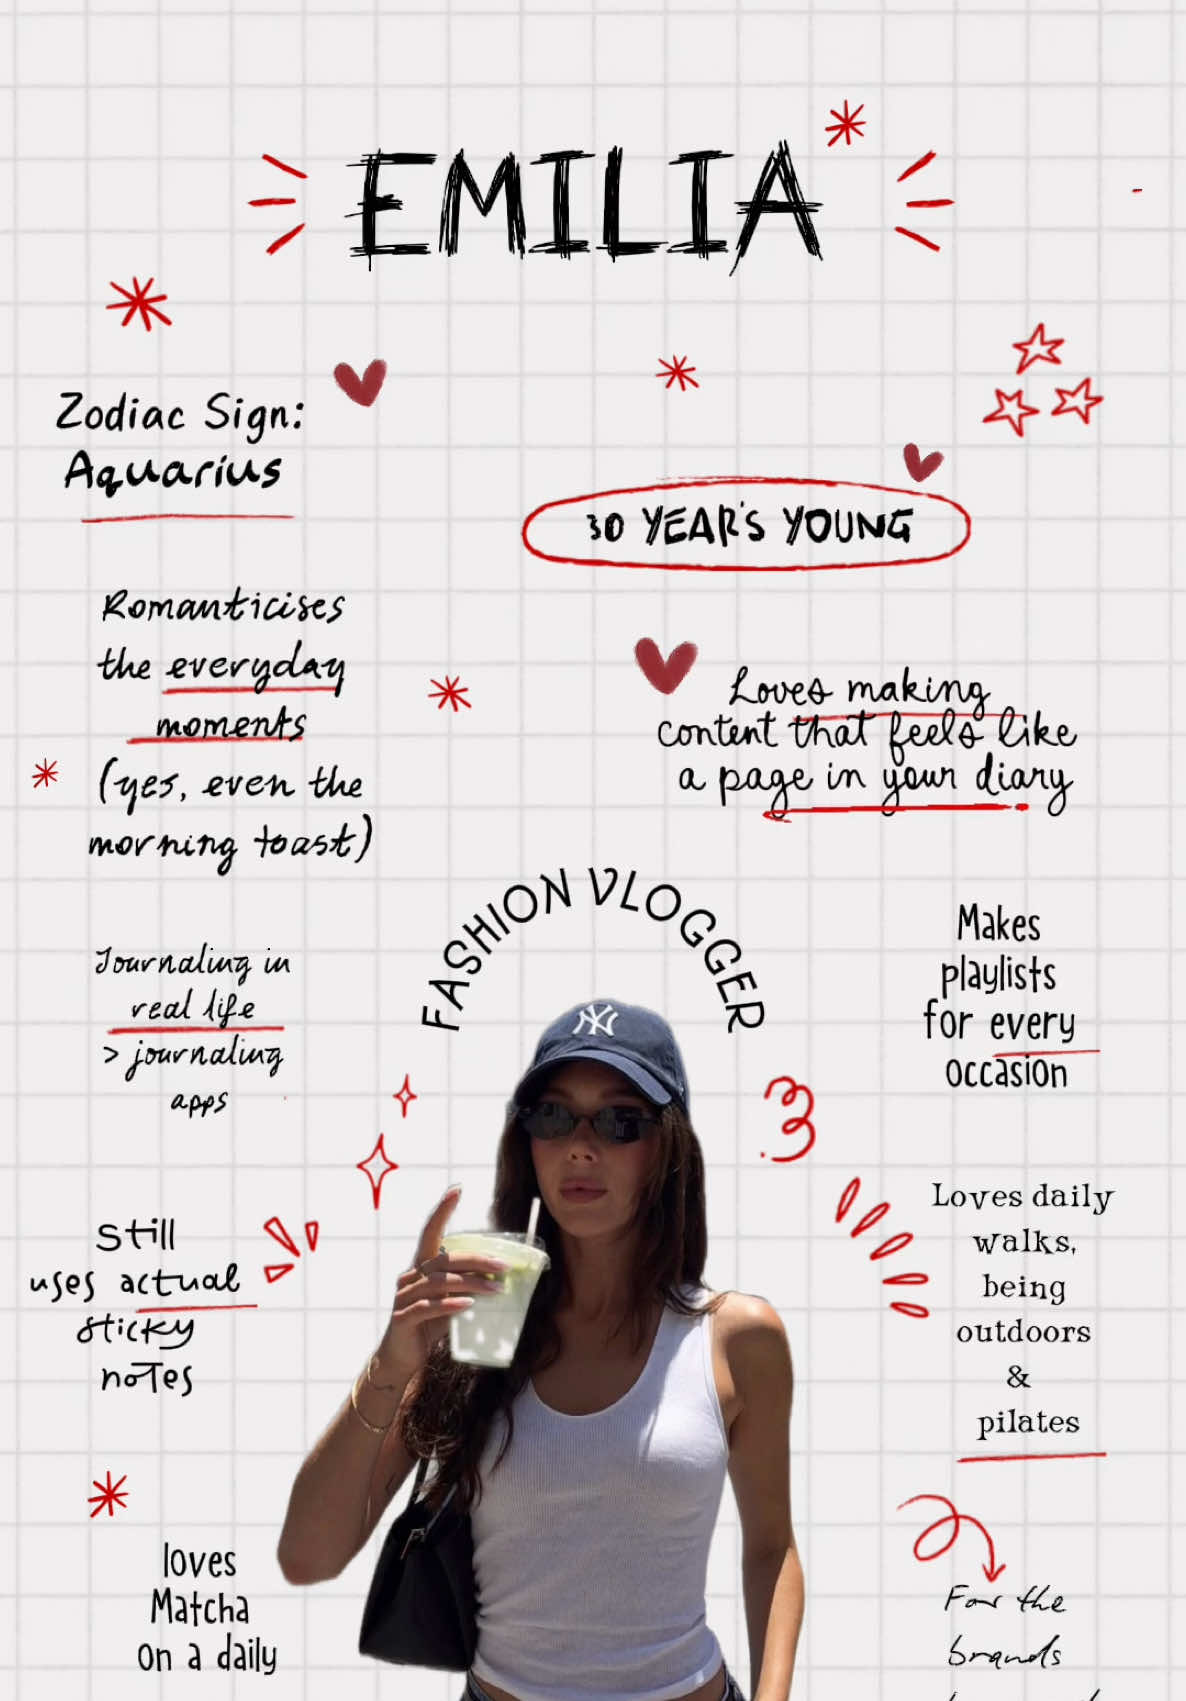 EMILIA
Zodiac Sign:
Aquarius
30 YEAR'S YOUNG
Romanticises
the everyday
moments
(yes, even the
morning toast)
Loves making
content that feels like
a page in your diary
FASHION VLOGGER
Journaling in
real life
> journaling
apps
Makes
playlists
for every
occasion
NY
Still
uses actual
sticky
notes
Loves daily
walks,
being
outdoors
&
pilates
loves
Matcha
on a daily
For the
brands